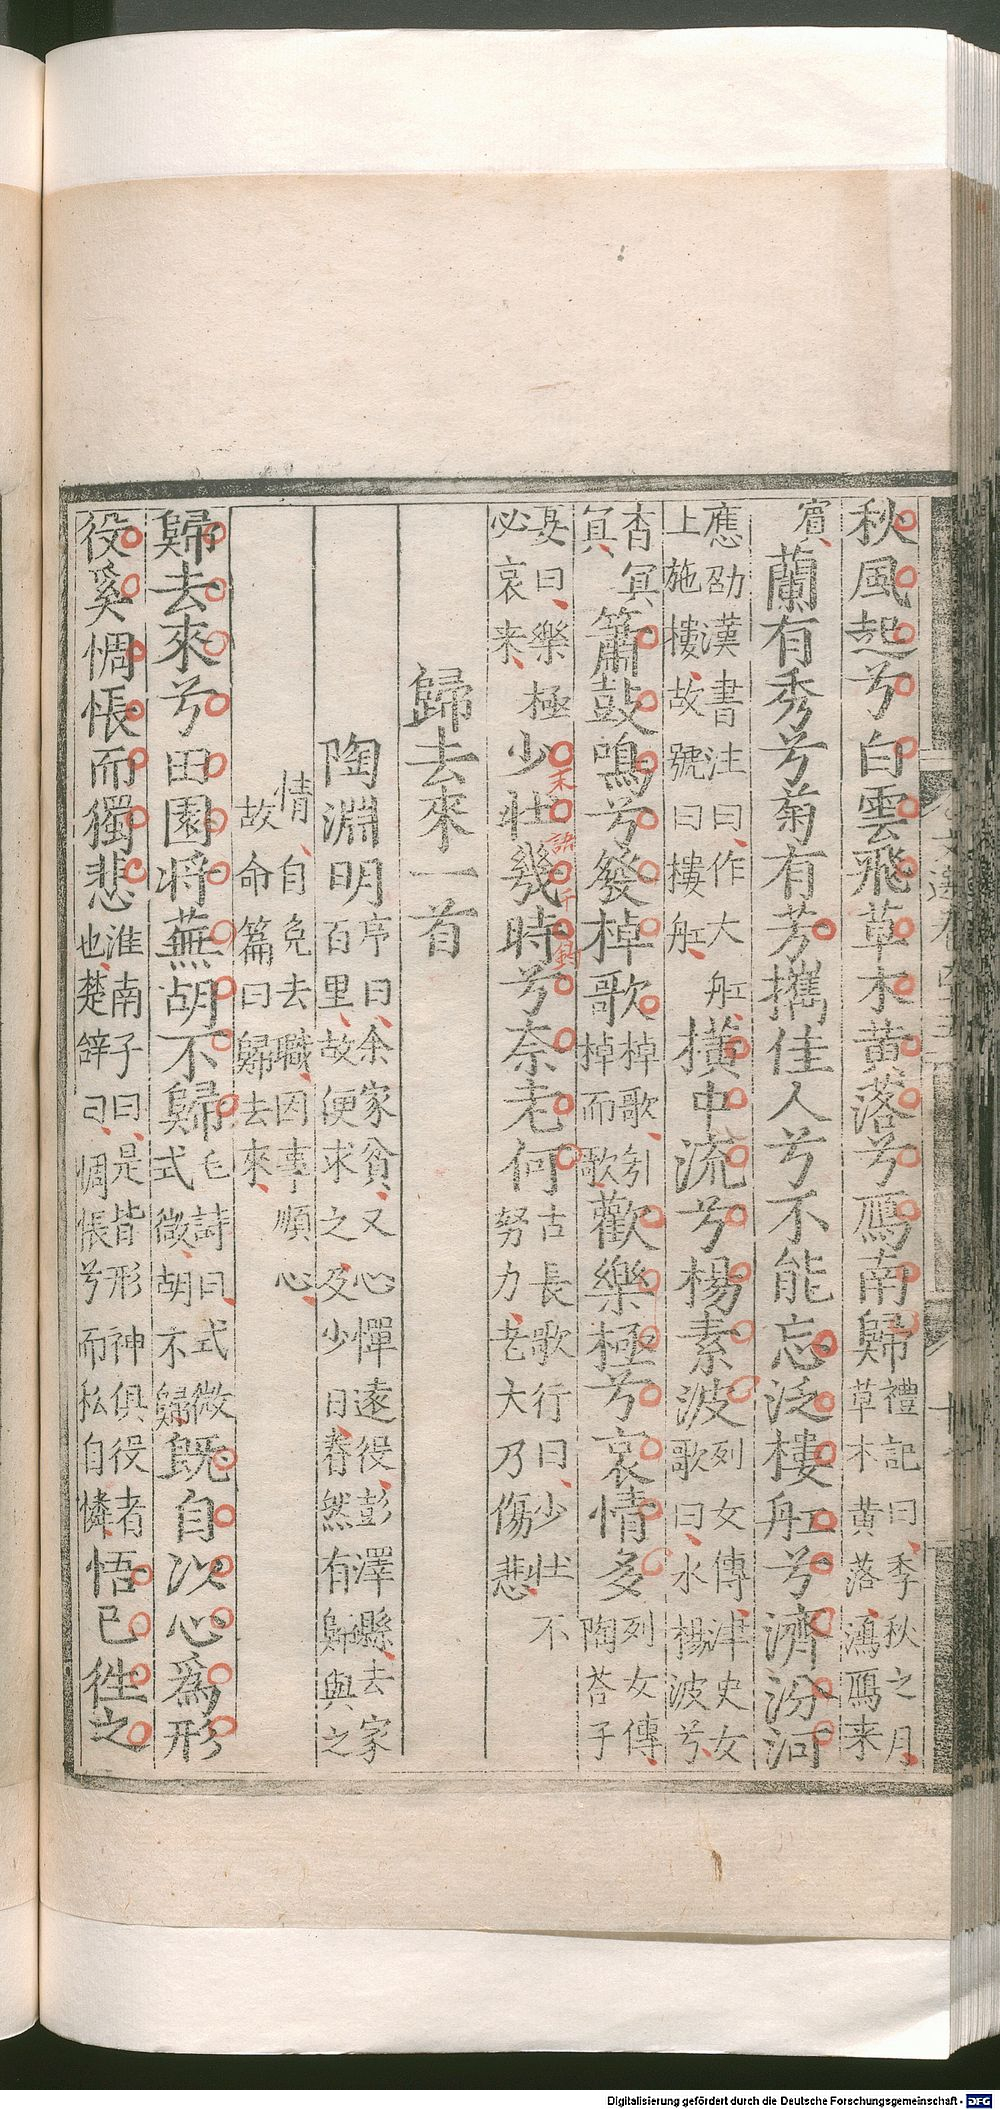 秋風起兮白雲飛草木黃落兮鴈南歸禮記曰季秋之月
草木黃落鴻鴈来
賓蘭有秀兮菊有芳攜佳人兮不能忘泛樓舡兮濟汾河
應劭漢書注曰作大舡
上施樓故號曰樓舡橫中流兮楊素波列女傳津吏女
歌曰水楊波兮
杳冥
冥簫鼓鳴兮發棹歌棹歌引
棹而歌歡樂極兮哀情多列女傳
陶荅子
妻曰樂極
必哀来少壯幾時兮奈老何古長歌行曰少壯不
努力老大乃傷悲
末語斤鋳
歸去來一首
陶淵明序曰余家貧又心憚遠役彭澤縣去家
百里故便求之及少日眷然有歸與之
情自免去職因事順心
故命篇曰歸去來
歸去來兮田園将蕪胡不歸毛詩曰式微
式微胡不歸既自以心爲形
役奚惆悵而獨悲淮南子曰是皆形神俱役者
也楚辭曰惆悵兮而私自憐悟已徃之
Digitalisierung gefördert durch die Deutsche Forschungsgemeinschaft - DFG